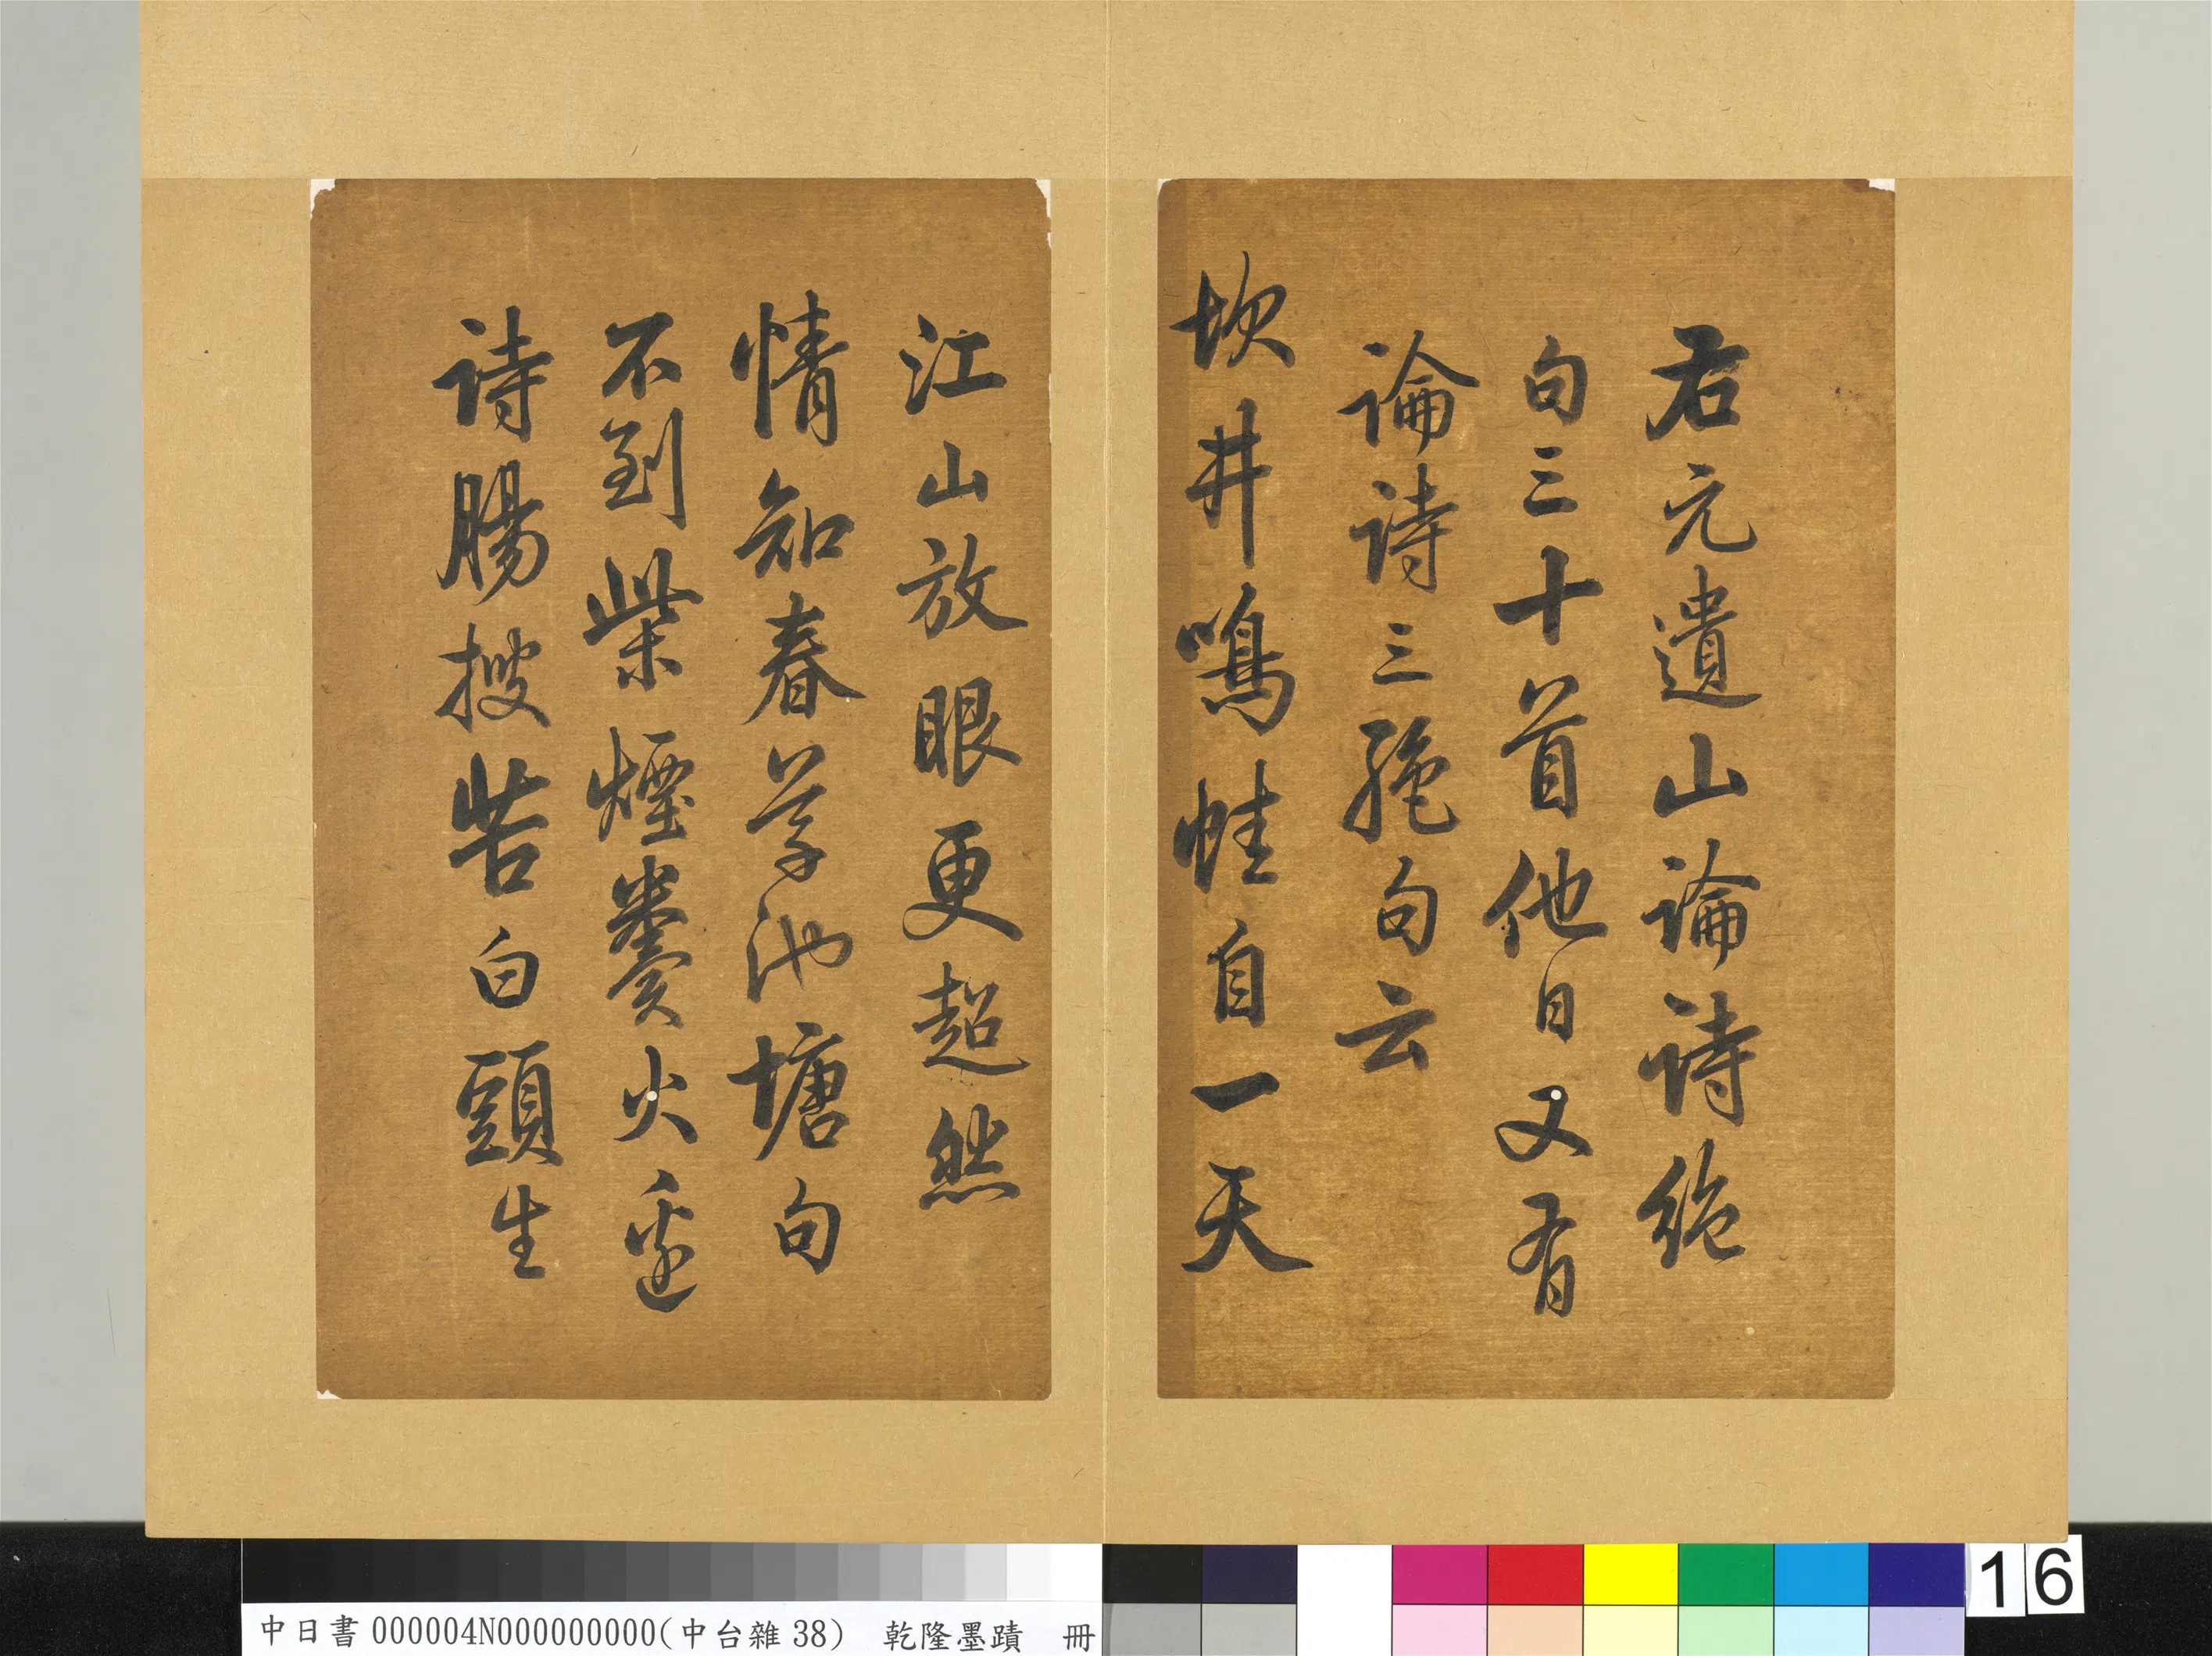 右元遺山論詩絕
句三十首他日又有
論詩三絕句云
坎井鳴蛙自一天
江山放眼更超然
情知春草池塘句
不到柴煙糞火邊
詩腸搜苦白頭生
中日書000004N000000000(中台雜38) 乾隆墨蹟 冊
16